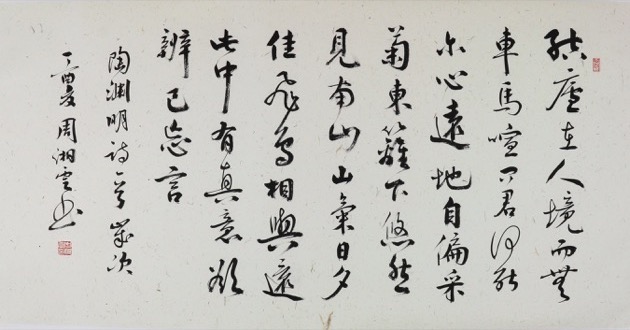 結廬在人境而無
車馬喧問君何能
尓心遠地自偏采
菊東籬下悠然
見南山山氣日夕
佳飛鳥相與還
此中有真意欲
辨已忘言
陶淵明詩一首歲次
丁酉夏周湘雲书